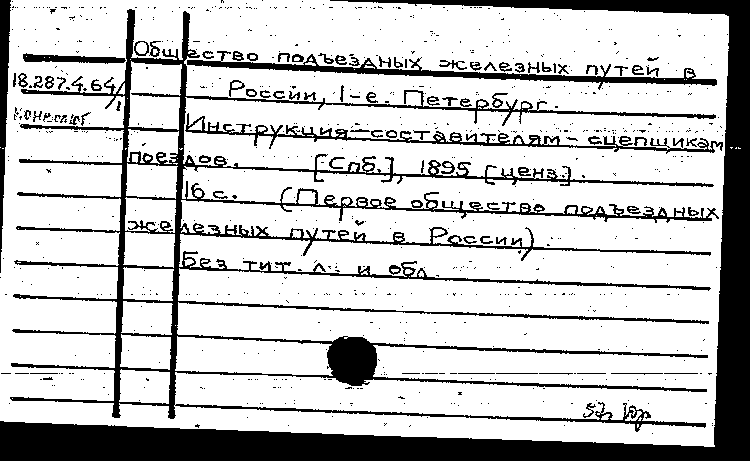 Общество подъездных железных путей в
18.287.4.64/1 России, 1-е. Петербург.
Инструкция составителям - сцепщикам
поездов. [Спб.], 1895 [ценз].
16 с. (Первое общество подъездных
железных путей в России).
Без тит. л. и обл.